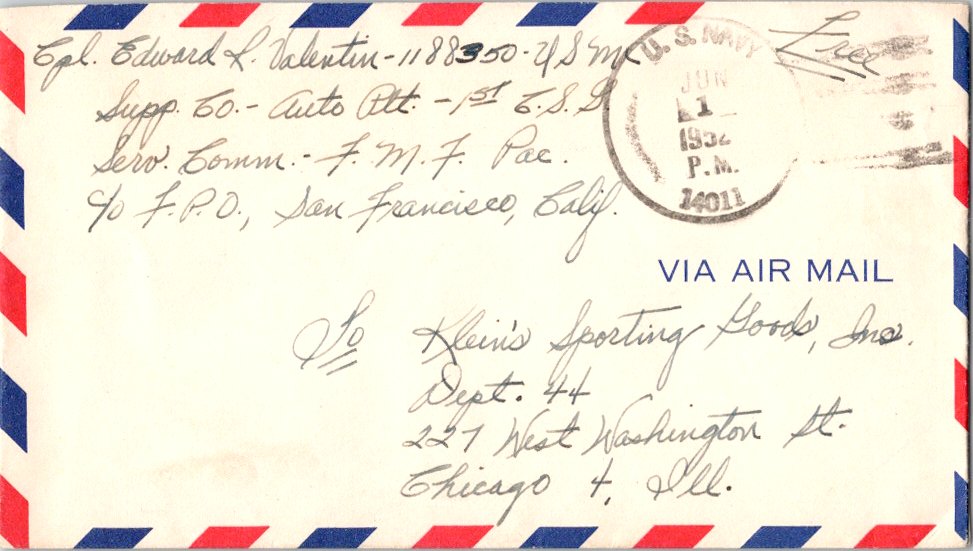 Cpl. Edward L. Valentin - 1188350 - USMC
Supp. Co. - Auto Att. - 1st C.S.G
Serv. Comm. - F. M. F. Pac.
c/o F.P.O., San Francisco, Calif.
Free
U. S. NAVY
JUN
1
1952
P.M.
14011
VIA AIR MAIL
To Klein's Sporting Goods, Inc.
Dept. 44
227 West Washington St.
Chicago 4, Ill.